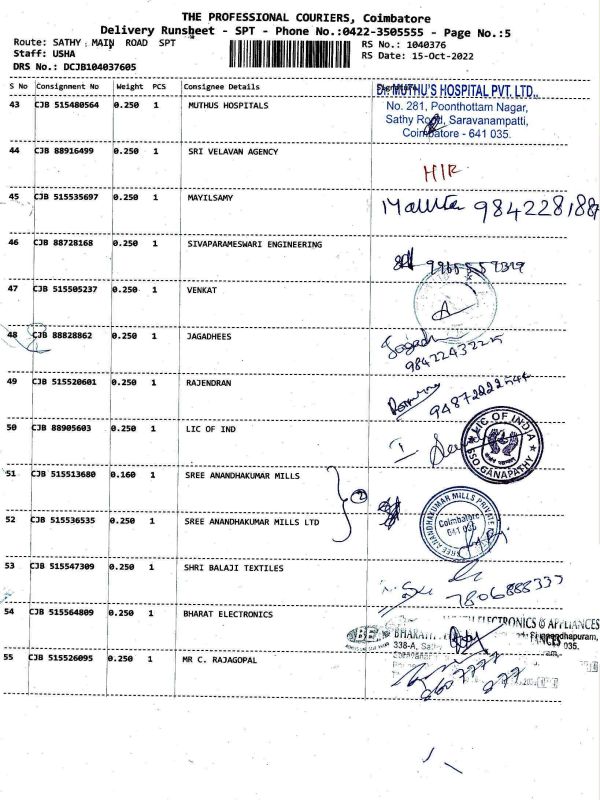 THE PROFESSIONAL COURIERS, Coimbatore
Delivery Runsheet - SPT - Phone No.:0422-3505555 - Page No.:5
Route: SATHY MAIN ROAD SPT
RS No.: 1040376
Staff: USHA
RS Date: 15-Oct-2022
DRS No.: DCJB104037605
S No Consignment No Weight PCS Consignee Details Signature
Dr. MUTHU'S HOSPITAL PVT. LTD.,
43 CJB 515480564 0.250 1 MUTHUS HOSPITALS
No. 281, Poonthottam Nagar,
Sathy Road, Saravanampatti,
Coimbatore - 641 035.
44 CJB 88916499 0.250 1 SRI VELAVAN AGENCY
45 CJB 515535697 0.250 1 MAYILSAMY
984228188
46 CJB 88728168 0.250 1 SIVAPARAMESWARI ENGINEERING
47 CJB 515505237 0.250 1 VENKAT
48 CJB 88828862 0.250 1 JAGADHEES
49 CJB 515520601 0.250 1 RAJENDRAN
50 CJB 88905603 0.250 1 LIC OF IND
LIC OF INDIA
GANAPATHY
51 CJB 515513680 0.160 1 SREE ANANDHAKUMAR MILLS
2
52 CJB 515536535 0.250 1 SREE ANANDHAKUMAR MILLS LTD
SREE ANANDHAKUMAR MILLS PRIVATE
Coimbatore
641 035
53 CJB 515547309 0.250 1 SHRI BALAJI TEXTILES
7806888333
54 CJB 515564809 0.250 1 BHARAT ELECTRONICS
ELECTRONICS & APPLIANCES
BE
BHARATH
338-A, Sathy
035.
55 CJB 515526095 0.250 1 MR C. RAJAGOPAL